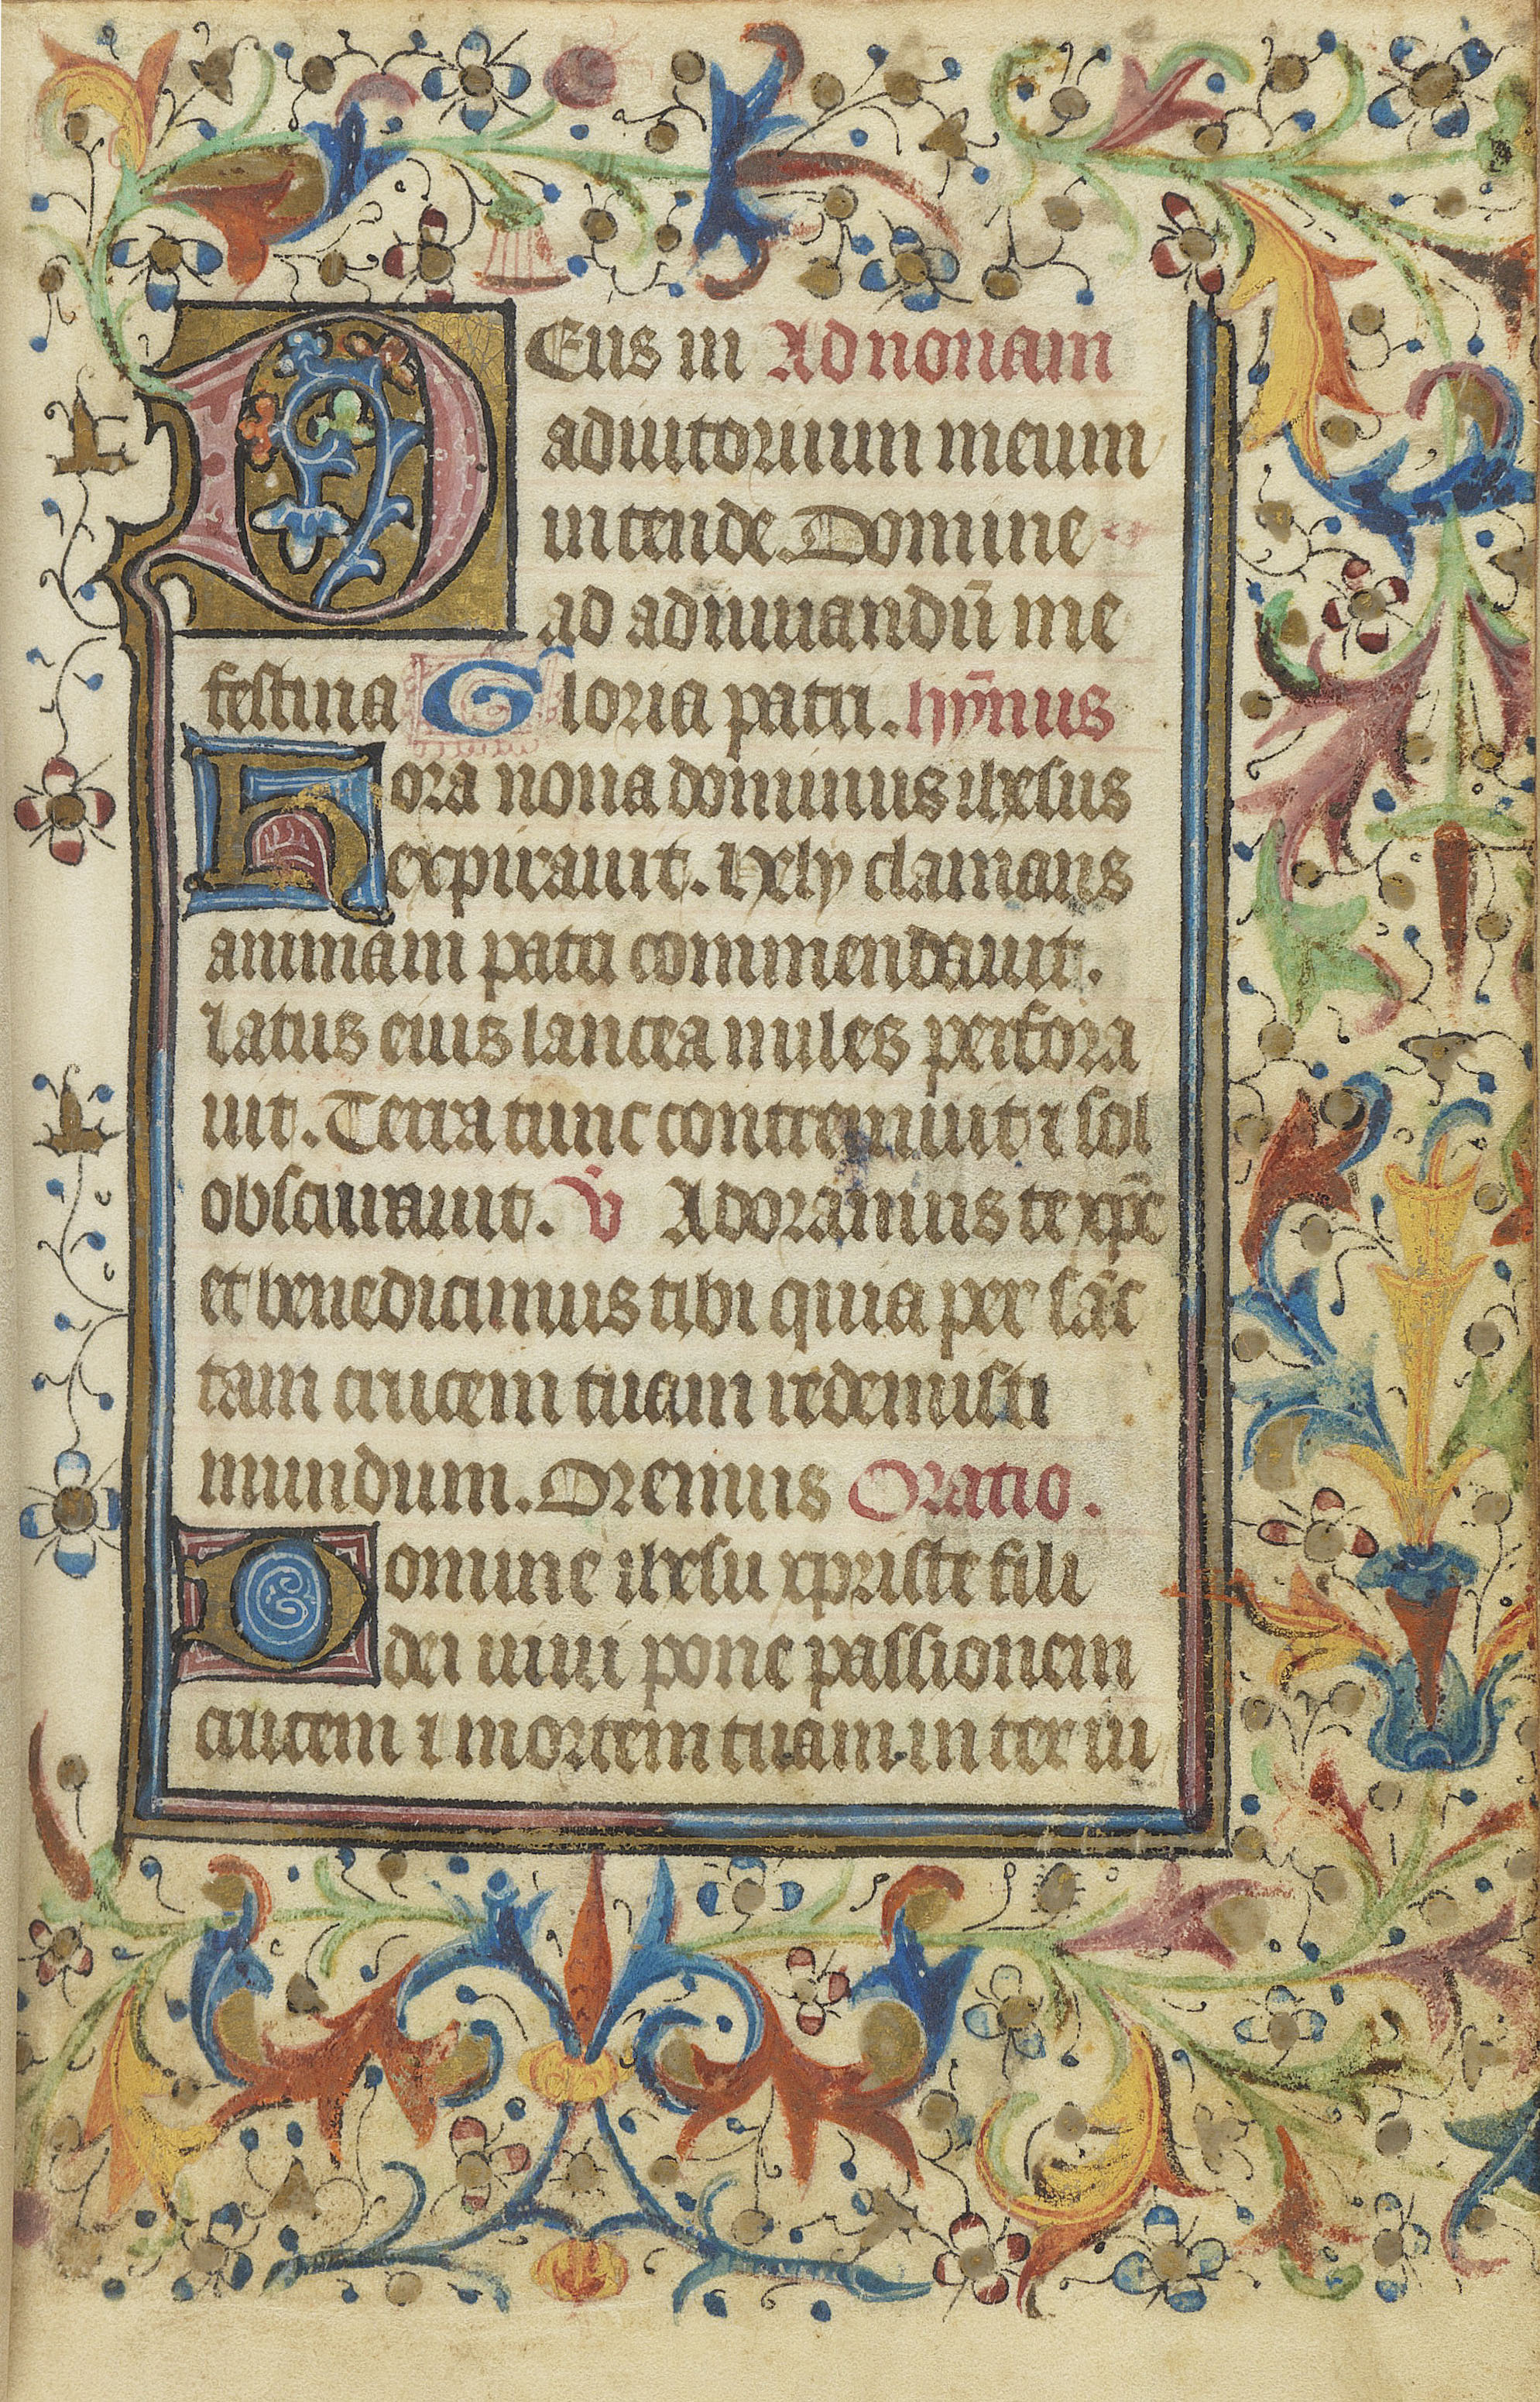 DEus in Ad nonam
adiutorium meum
intende Domine
ad adiuuandū me
festina Gloria patri. hȳnus
Hora nona dominus ihesus
expirauit. Hely clamans
animam patri commendauit.
latus eius lancea miles perfora
uit. Terra tunc contremuit ⁊ sol
obscurauit. v̄ Adoramus te xp̄e
et benedicimus tibi quia per sāc
tam crucem tuam redemisti
mundum. Oremus Oratio.
Domine ihesu xpriste fili
dei uiui pone passionem
crucem ⁊ mortem tuam inter iu